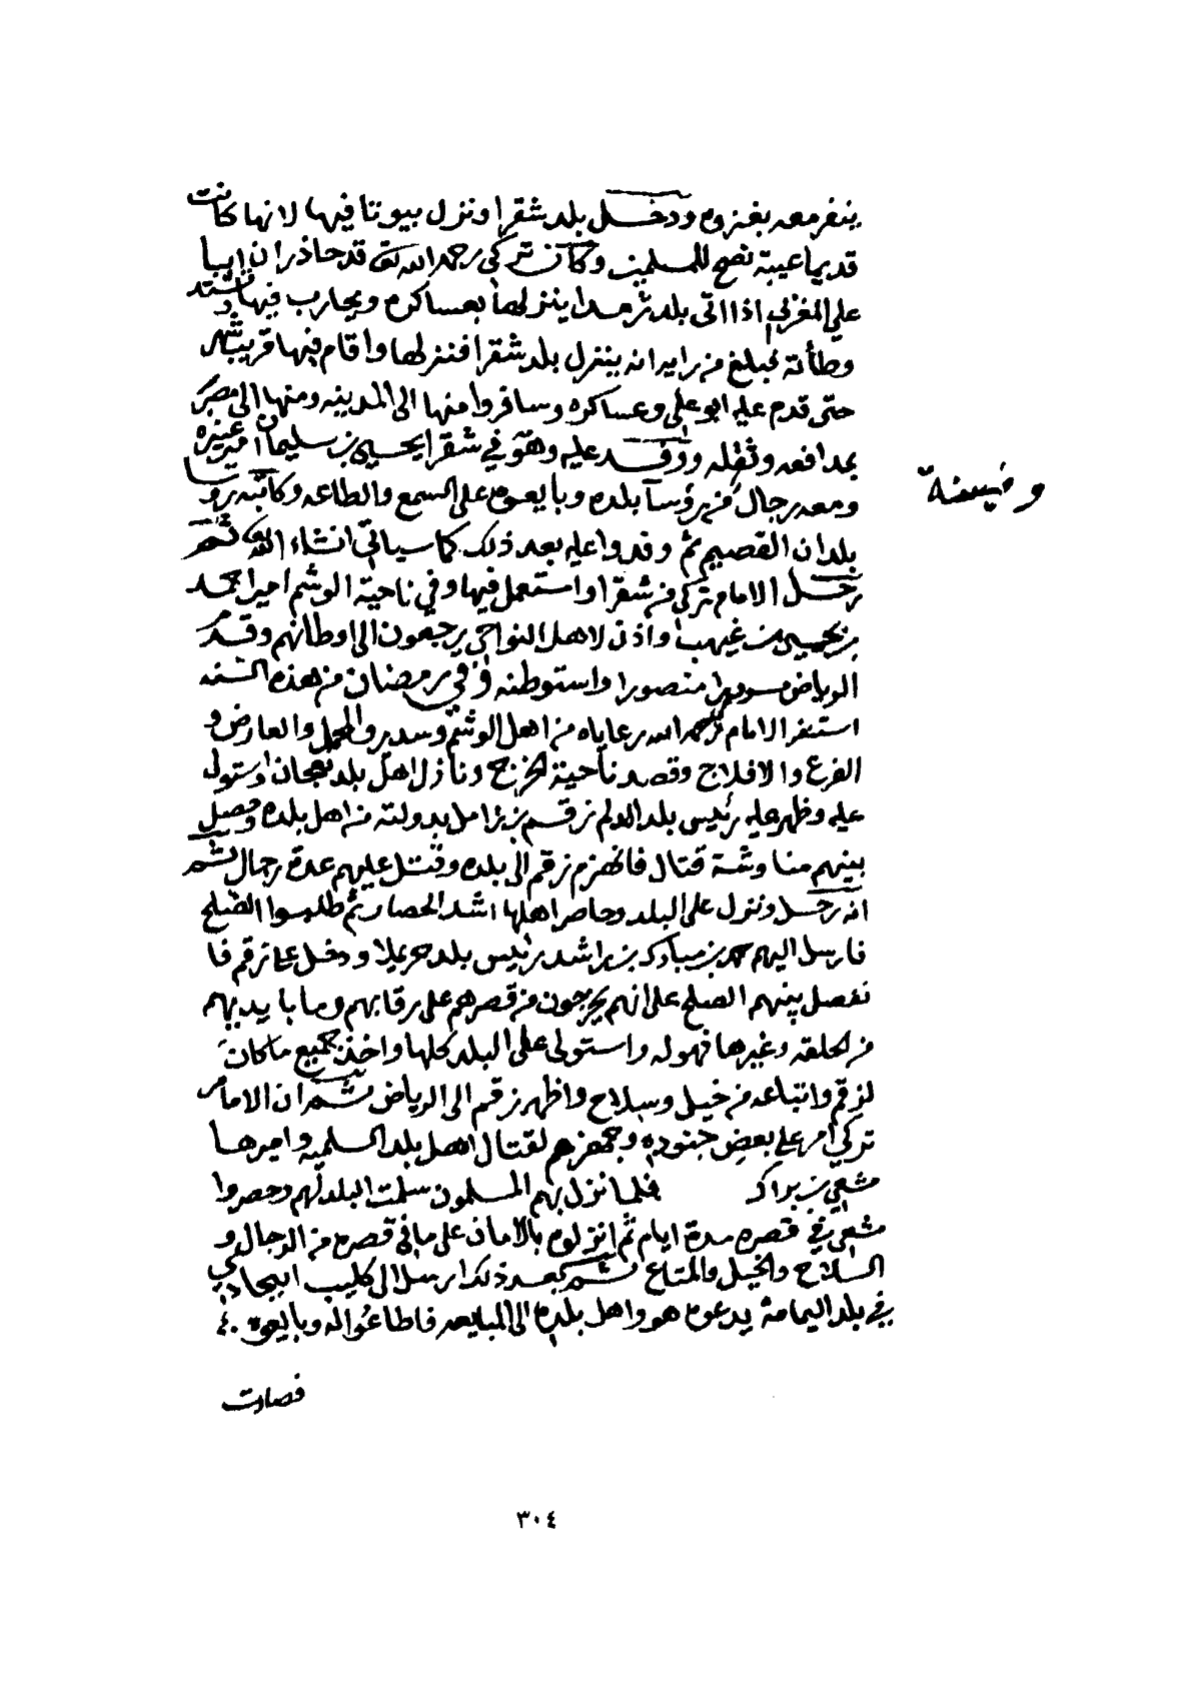 ينفر معه بغزوه ودخل بلد شقرا ونزل بيوتا فيها لانها كانت
قديما عيبة نصح للمسلمين وكان تركي رحمه الله تعالى قد حاذر ان ابا
علي المغربي اذا اتى بلد ثرمدا ينزلها بعساكره ويحارب فيها وتشتد
وطأته فبلغ من رايه انه ينزل بلد شقرا فنزلها واقام فيها قريب شهر
حتى قدم عليه ابو علي وعساكره وسافروا منها الى المدينه ومنها الى مصر
بمدافعه وثقله ووفد عليه وهو في شقرا يحيى بن سليمان امير عنيزه
ومعه رجال من رؤسآ بلده وبايعوه على السمع والطاعه وكاتبه رؤسا
بلدان القصيم ثم وفدوا عليه بعد ذلك كما سياتي انشاء الله تعالى ثم
رحل الامام تركي من شقرا واستعمل فيها وفي ناحية الوشم اميرا حمد
بن يحيى بن غيهب واذن لاهل النواحي يرجعون الى اوطانهم وقدم
الرياض منصورا واستوطنه وفي رمضان من هذه السنه
استنفر الامام رحمه الله رعاياه من اهل الوشم وسدير والمحمل والعارض و
الفرع والافلاج وقصد ناحية الخرج ونازل اهل بلد نعجان واستولى
عليه وظهر عليه رئيس بلد الدلم زقم بن زامل بدولته من اهل بلده وحصل
بينهم مناوشة قتال فانهزم زقم الى بلده وقتل عليهم عدة رجال ثم
انه رحل ونزل على البلد وحاصر اهلها اشد الحصار ثم طلبوا الصلح
فارسل اليهم حمد بن مبارك بن راشد رئيس بلد حريملا ودخل على زقم فا
نفصل بينهم الصلح على انهم يخرجون من قصرهم على رقابهم وما بايديهم
من الحلقه وغيرها فهو له واستولى على البلد كلها واخذ جميع ما كان
لزقم واتباعه من خيل وسلاح واظهر زقم الى الرياض ثم ان الامام
تركي امر على بعض جنوده وجهزهم لقتال اهل بلد السلمية واميرها
مشعي بن براك فلما نزل بهم المسلمون سلمت البلد لهم وحصروا
مشعي في قصره مدة ايام ثم انزلوه بالامان على ما في قصره من الرجال و
السلاح والخيل والمتاع ثم بعد ذلك ارسل الى كليب البجادي
في بلد اليمامة يدعوه هو واهل بلده الى المبايعه فاطاعوا له وبايعوه
فصارت
٣٠٤